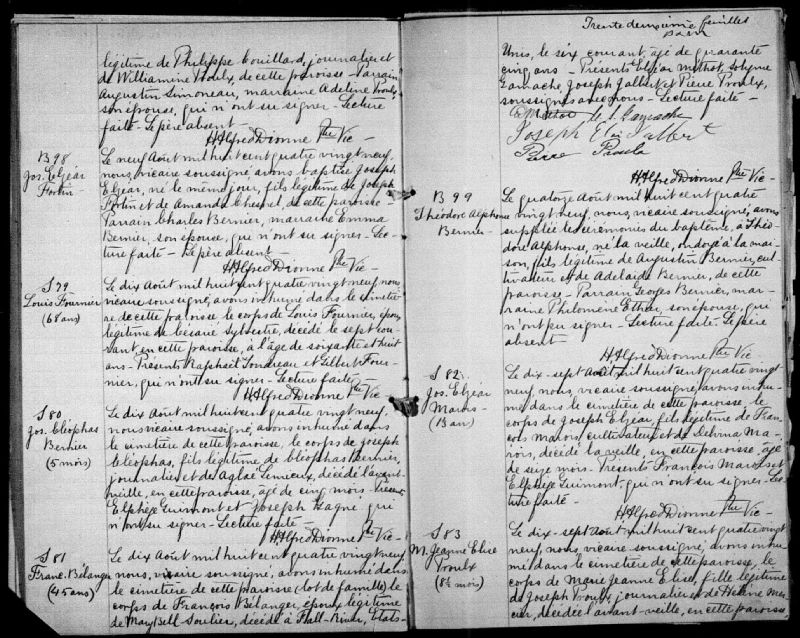 légitime de Philippe Couillard, journalier et
de Williamine Proulx, de cette paroisse - Parrain
Augustin Simoneau, marraine Adeline Proulx,
son épouse, qui n'ont su signer - Lecture
faite - Le père absent -
H. Alfred Dionne Ptre Vic -
B 98
Jos. Elzéar
Fortin
Le neuf Août mil huit cent quatre vingt neuf,
nous, vicaire soussigné, avons baptisé Joseph
Elzéar, né le même jour, fils légitime de Joseph
Fortin et de Amanda, de cette paroisse -
Parrain Charles Bernier, marraine Emma
Bernier, son épouse, qui n'ont su signer - Lec-
ture faite - Le père absent -
H. Alfred Dionne Ptre Vic -
S 79
Louis Fournier
(68 ans)
Le dix Août mil huit cent quatre vingt neuf, nous,
vicaire soussigné, avons inhumé dans le cimetiè-
re de cette paroisse le corps de Louis Fournier, époux
légitime de Césarie Sylvestre, décédé le sept cou-
rant, en cette paroisse, à l'âge de soixante et huit
ans - Présents Raphaël Jondreau et Gilbert Four-
nier, qui n'ont su signer - Lecture faite -
H. Alfred Dionne Ptre Vic -
S 80
Jos. Cléophas
Bernier
(5 mois)
Le dix Août mil huit cent quatre vingt neuf,
nous, vicaire soussigné, avons inhumé dans
le cimetière de cette paroisse, le corps de Joseph
Cléophas, fils légitime de Cléophas Bernier,
journalier et de Aglaé Lemieux, décédé l'avant-
veille, en cette paroisse, agé de cinq mois - Présents
Elphège Guimont et Joseph Gagné qui
n'ont su signer - Lecture faite -
H. Alfred Dionne Ptre Vic -
S 81
Franc. Bélanger
(45 ans)
Le dix Août mil huit cent quatre vingt neuf
nous, vicaire soussigné, avons inhumé dans
le cimetière de cette paroisse (lot de famille) le
corps de François Bélanger, époux légitime
de Mary Bell Soulier, décédé à Fall-River, Etats-
Trente deuxième feuillet
Unis, le six courant, agé de quarante
cinq ans - Présents Elzéar Méthot, Solyme
Gamache, Joseph Jalbert et Pierre Proulx,
soussignés avec nous - Lecture faite -
E. Methot
Gamache
Joseph Jalbert
Pierre Proulx
H. Alfred Dionne Ptre Vic -
B 99
Théodore Alphonse
Bernier -
Le quatorze Août mil huit cent quatre
vingt neuf, nous, vicaire soussigné, avons
suppléé les cérémonies du baptême, à Théo-
dore Alphonse, né la veille, ondoyé à la mai-
son, fils légitime de Augustin Bernier, cul-
tivateur et de Adelaïde Bernier, de cette
paroisse - Parrain Georges Bernier, mar-
raine Philomène Ethier, son épouse, qui
n'ont pu signer - Lecture faite - Le père
absent
H. Alfred Dionne Ptre Vic -
S 82
Jos. Elzéar
Marois -
Le dix-sept Août mil huit cent quatre vingt
neuf, nous, vicaire soussigné, avons inhu-
mé dans le cimetière de cette paroisse, le
corps de Joseph Elzéar, fils légitime de Fran-
çois Marois, cultivateur et de Delvina Ma-
rois, décédé la veille, en cette paroisse, agé
de seize mois - Présents François Marois et
Elphège Guimont - qui n'ont su signer - Lec-
ture faite -
H. Alfred Dionne Ptre Vic -
S 83
M. Jeanne Elise
Proulx
(8½ mois)
Le dix-sept Août mil huit cent quatre vingt
neuf, nous, vicaire soussigné, avons inhu-
mé dans le cimetière de cette paroisse, le
corps de Marie Jeanne Elise, fille légitime
de Joseph Proulx, journalier et de Helène Mer-
cier, décédée l'avant-veille, en cette paroisse